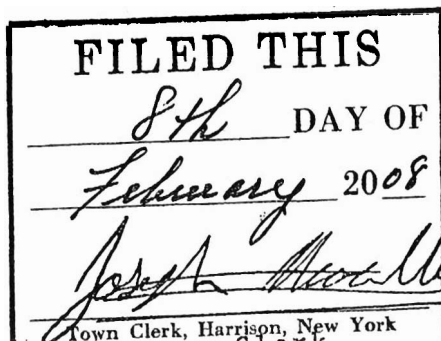 FILED THIS
8th DAY OF
February 2008
Joseph
Town Clerk, Harrison, New York
Clerk